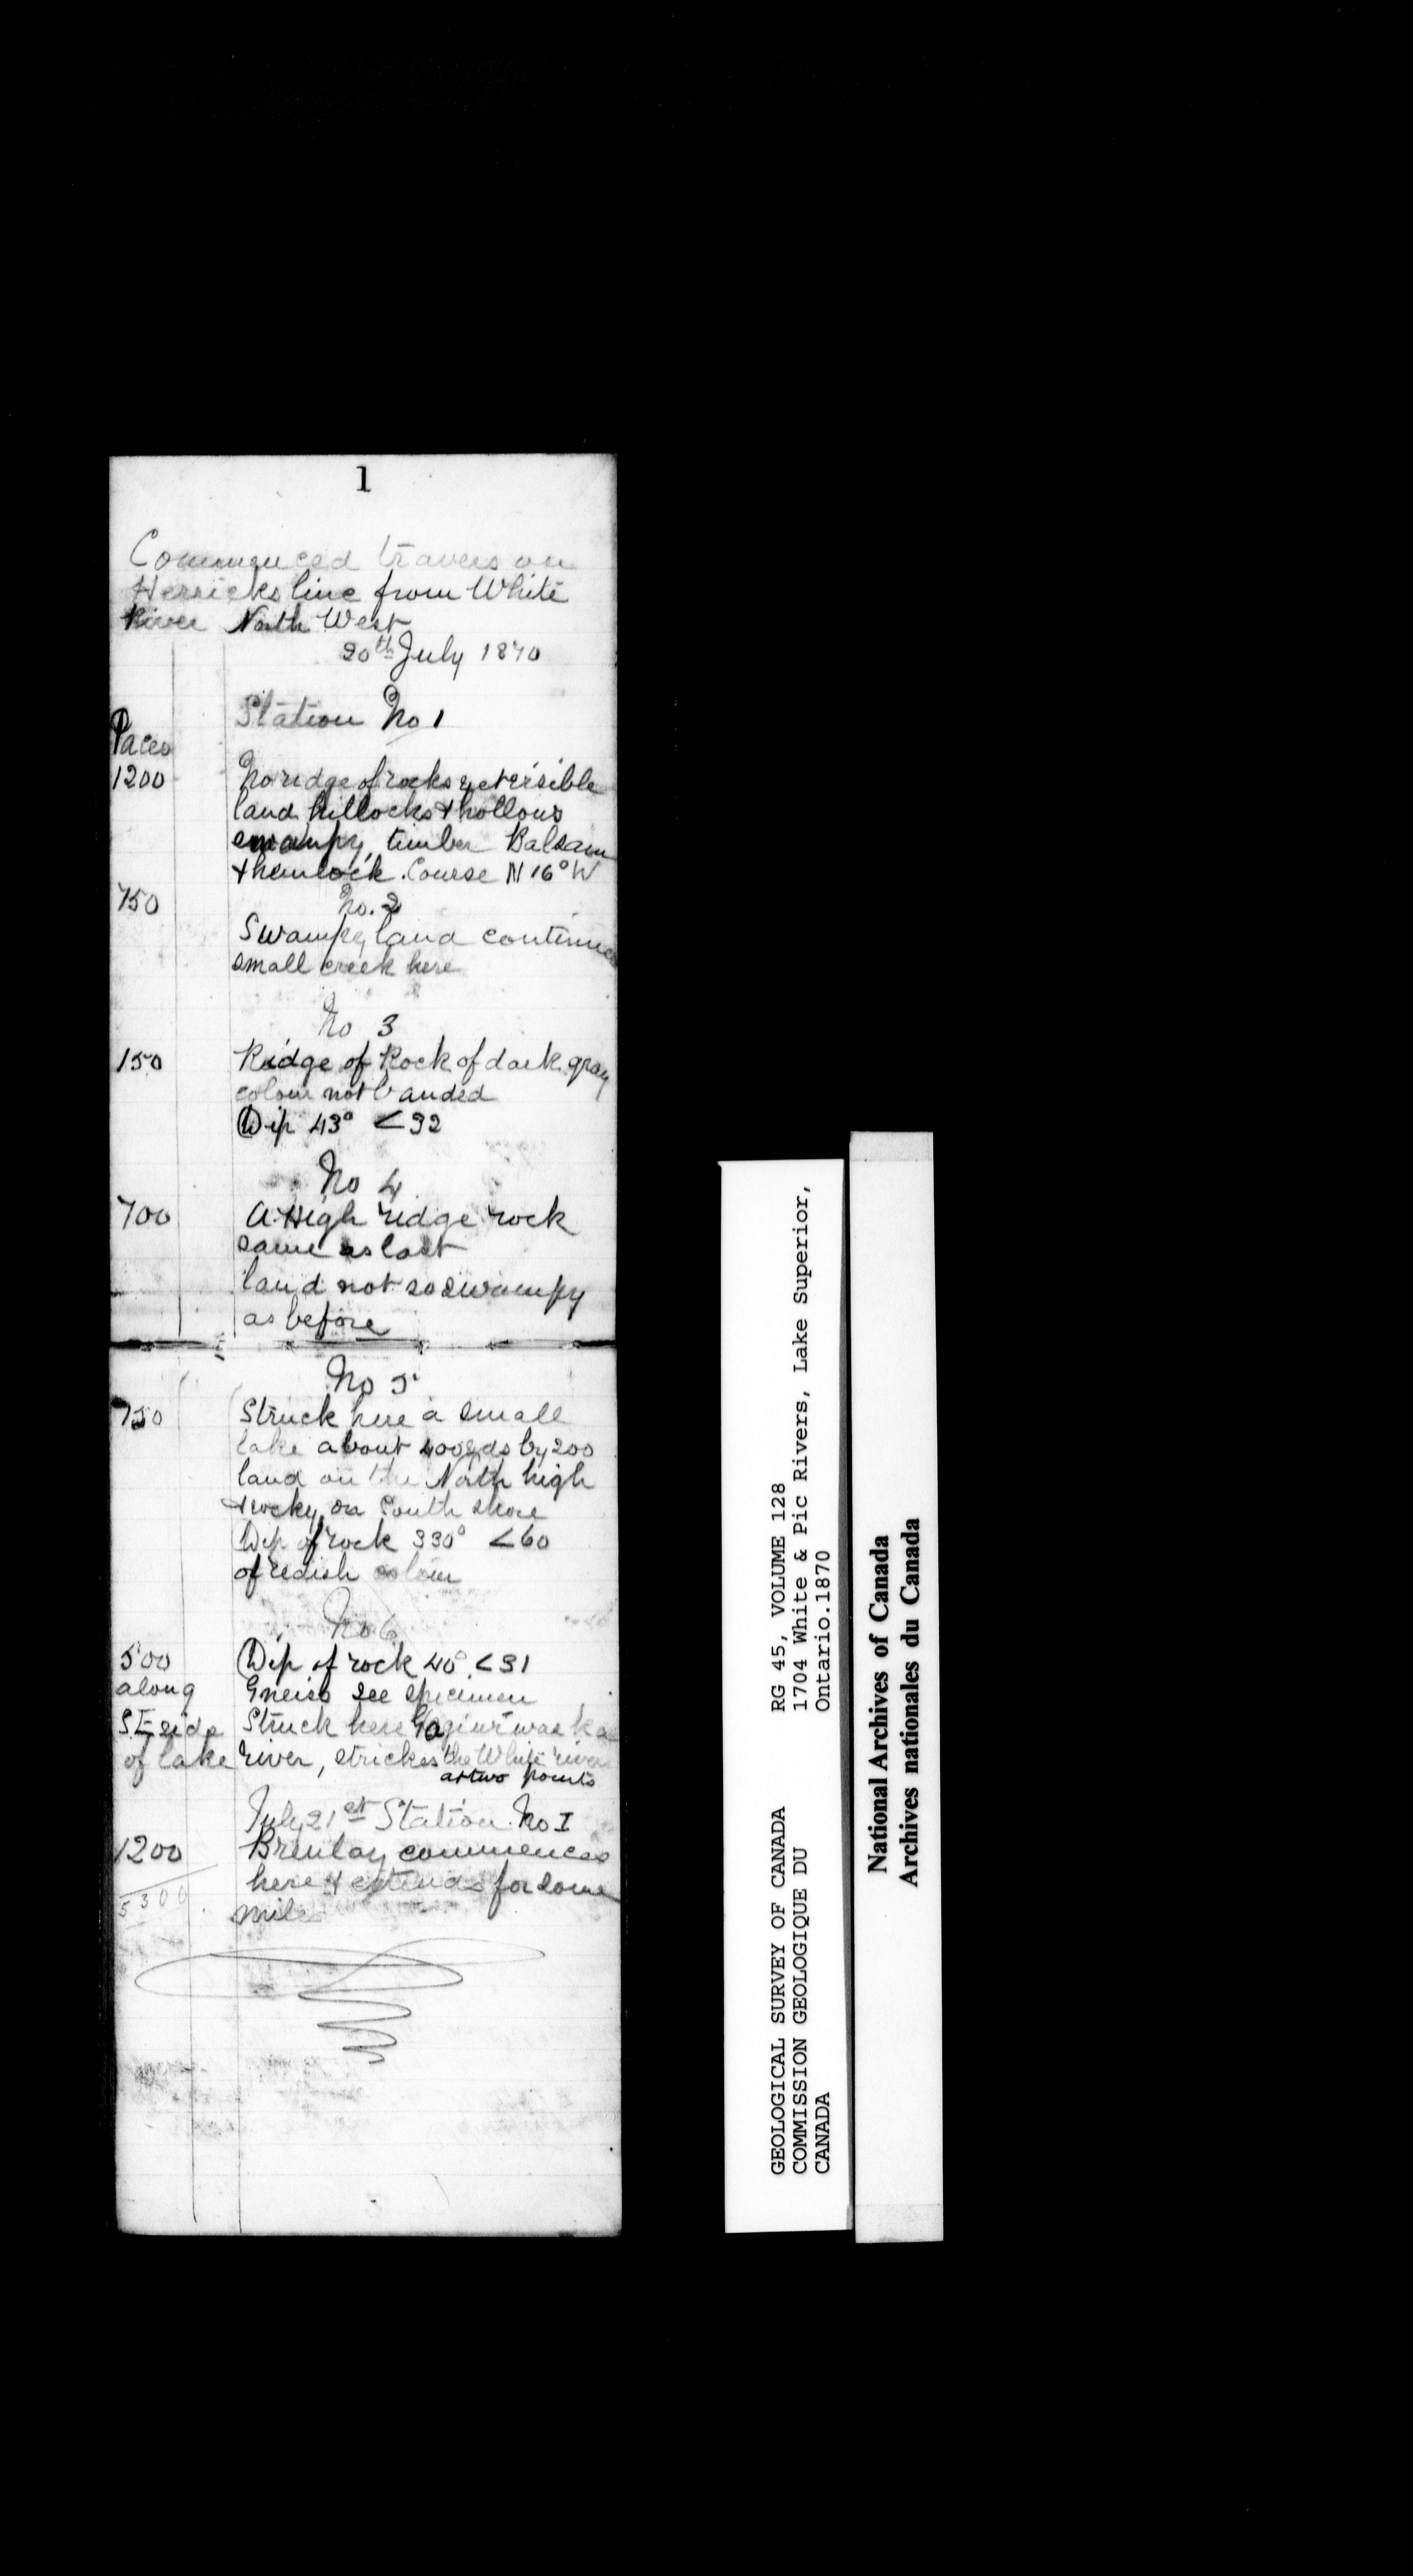 1
Commenced travers on
Herricks line from White
River North West
20th July 1870
Station No 1
Paces
1200 No ridge of rocks yet visible
land hillocks & hollows
swampy, timber Balsam
& hemlock. Course N 16° W
750 No. 2
Swampy land continues
small creek here
No 3
150 Ridge of Rock of dark gray
colour not banded
Dip 43° <32
No 4
700 A High ridge rock
same as last
land not so swampy
as before
No 5
750 Struck here a small
lake about 400 yds by 200
land on the North high
& rocky, on South shore
Dip of rock 330° <60
of redish colour
No 6
500 Dip of rock 40° <31
along Gneiss see specimen
S.E side Struck here
of lake river, strickes the White river
at two points
July 21st Station No I
1200 Brulay commences
here & extends for some
5300 miles
GEOLOGICAL SURVEY OF CANADA RG 45, VOLUME 128
COMMISSION GEOLOGIQUE DU 1704 White & Pic Rivers, Lake Superior,
CANADA Ontario.1870
National Archives of Canada
Archives nationales du Canada